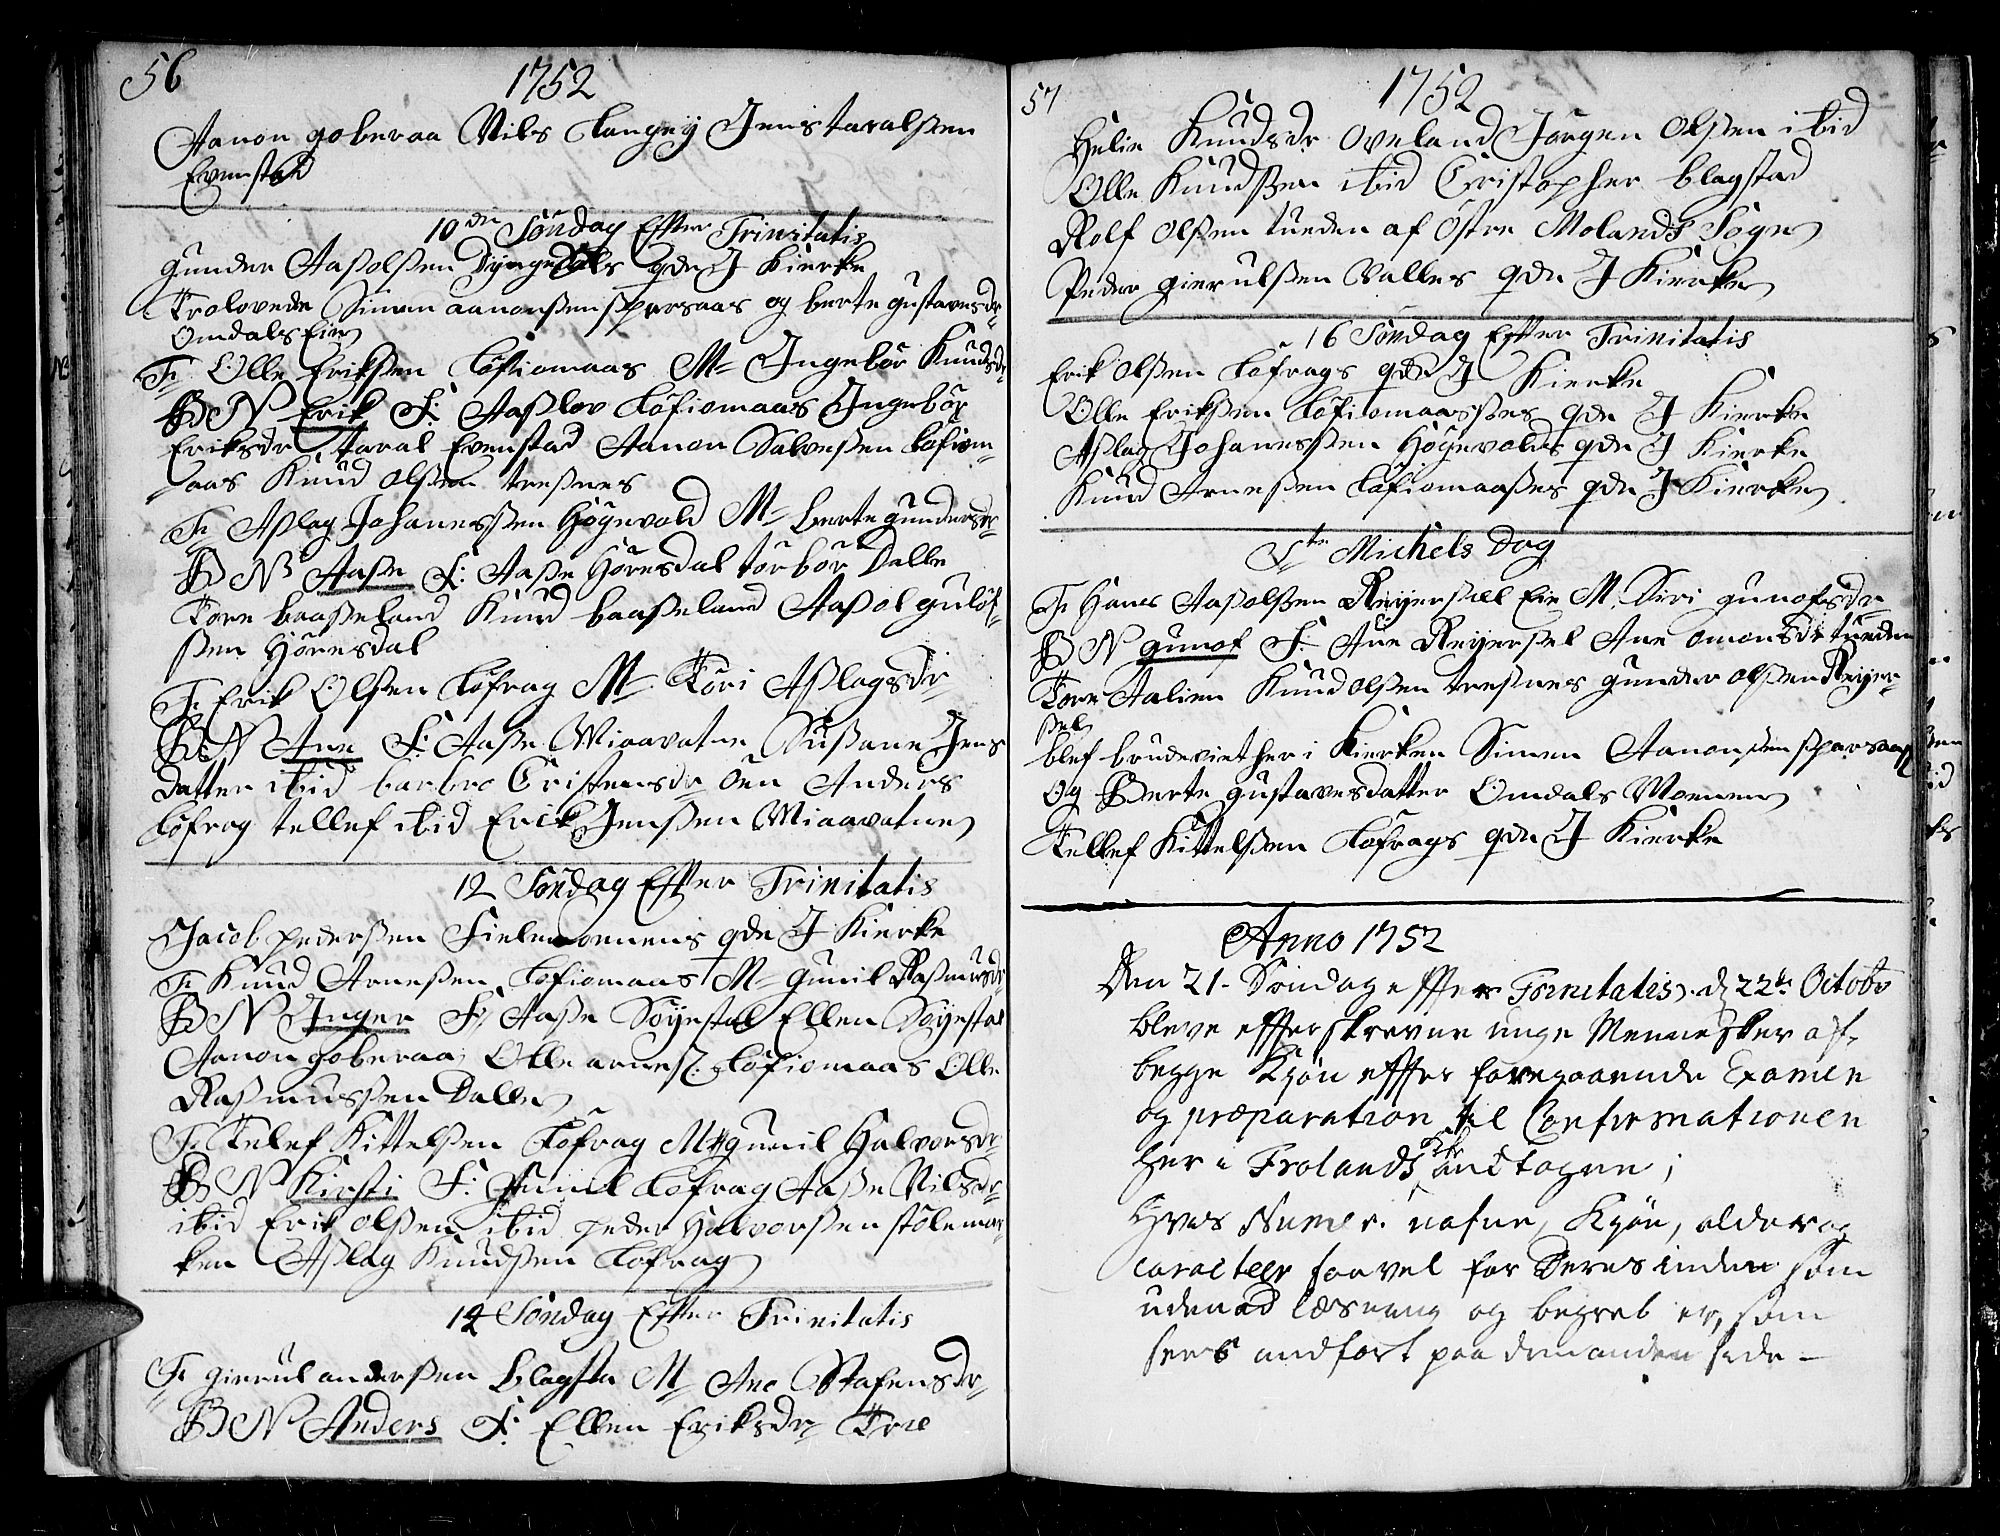 56
1752
Aanon goberaa Nils Langøy Jens taralßen
Evenstad
10de Søndag Effter Trinitatis
gunder Aaßolßen Dynge gde J Kierke
Trolovede Simen aanonßen sparsaas og berte gustavesdr
Omdals Eier
F: Olle Erikßen Løfiomaas M= Ingebor Knudsdr
B N Erik F: Aaßlov Løfiomaas Ingebör
Eriksdr taral Evenstad Aanon Salveßen Løfiom-
aas Knud olßen tresnes
F: Aßlag Johaneßen Høgevold M= berte gundersdr
B N Aaße F: Aaße Hörnesdal torbör Dalle
Tore baaßeland Knud baaßeland Aaßol gulof-
ßen Hörnesdal
F: Erik Olßen Løfrag M= Köri Aßlagsdr
B N Ane F: Aaße Miaavatne Sußane Jens
datter ibid barbro Cristensdr öen Anders
Løfrag tellef ibid Erik Jenßen Miaavatne
12 Søndag Effter Trinitatis
Jacob pederßen Fielemoenens gde J Kierke
F: Knud Arneßen Løfiomaas M= gunil Rasmusdr
B N Inger F: Aaße Søyestal Ellen Søyestal
Aanon goberaa Olle arneß. Løfiomaas Olle
Rasmusßen Dalle
F: Tellef Kittelßen Løfrag M= gunil Halvorsdr
B N Kirsti F: gunil Løfrag Aaße Nilsdr
ibid Erik olßen ibid peder Halvorßen stölemar
ken Aßlag Knudßen Løfrag
14 Søndag Effter Trinitatis
F: gierul anderßen blagsta M= Ane Stafensdr
B N Anders F: Ellen Eriksdr Trie
57
1752
Helie Knudsdr Oveland Jørgen Olßen ibid
Olle Knudßen ibid Cristopher blagstad
Rolf Olßen tueden af Østre Molands Sogn
Peder gierulßen Valles gde J Kierke
16 Søndag Effter Trinitatis
Erik Olßen Løfrags gde J Kierke
Olle Erikßen Løfiomaaßes gde J Kierke
Aßlag Johaneßen Høgevolds gde J Kierke
Knud Arneßen Løfiomaaßes gde J Kierke
Ste Michels Dag
F: Hans Aaßolßen Reyersæl Eie M. Siri gunofsdr
B N gunof F: Ane Reyersel Ane omonsdr tueden
Tore Dalien Knud olßen tresnes gunder olßen Reyer-
ßel
blef brudeviet her i Kierken Simen Aanonßen sparsaas
Og Berte gustavesdatter Omdals Moenen
Tellef Kittelßen Løfrags gde J Kierke
Anno 1752
Den 21. Søndag effter Trinitatis. d. 22de Octobr
bleve effterskrevne unge Mennesker af
begge Kjøn effter foregaaende Examen
og præparation til Confirmationen
her i Frolands Kir. andtagen;
hvis Numer. nafne, Kjøn, alder og
caracteer saavel for Deres inden som
udenad læsning og begreb er, som
sees andført paa den anden side –